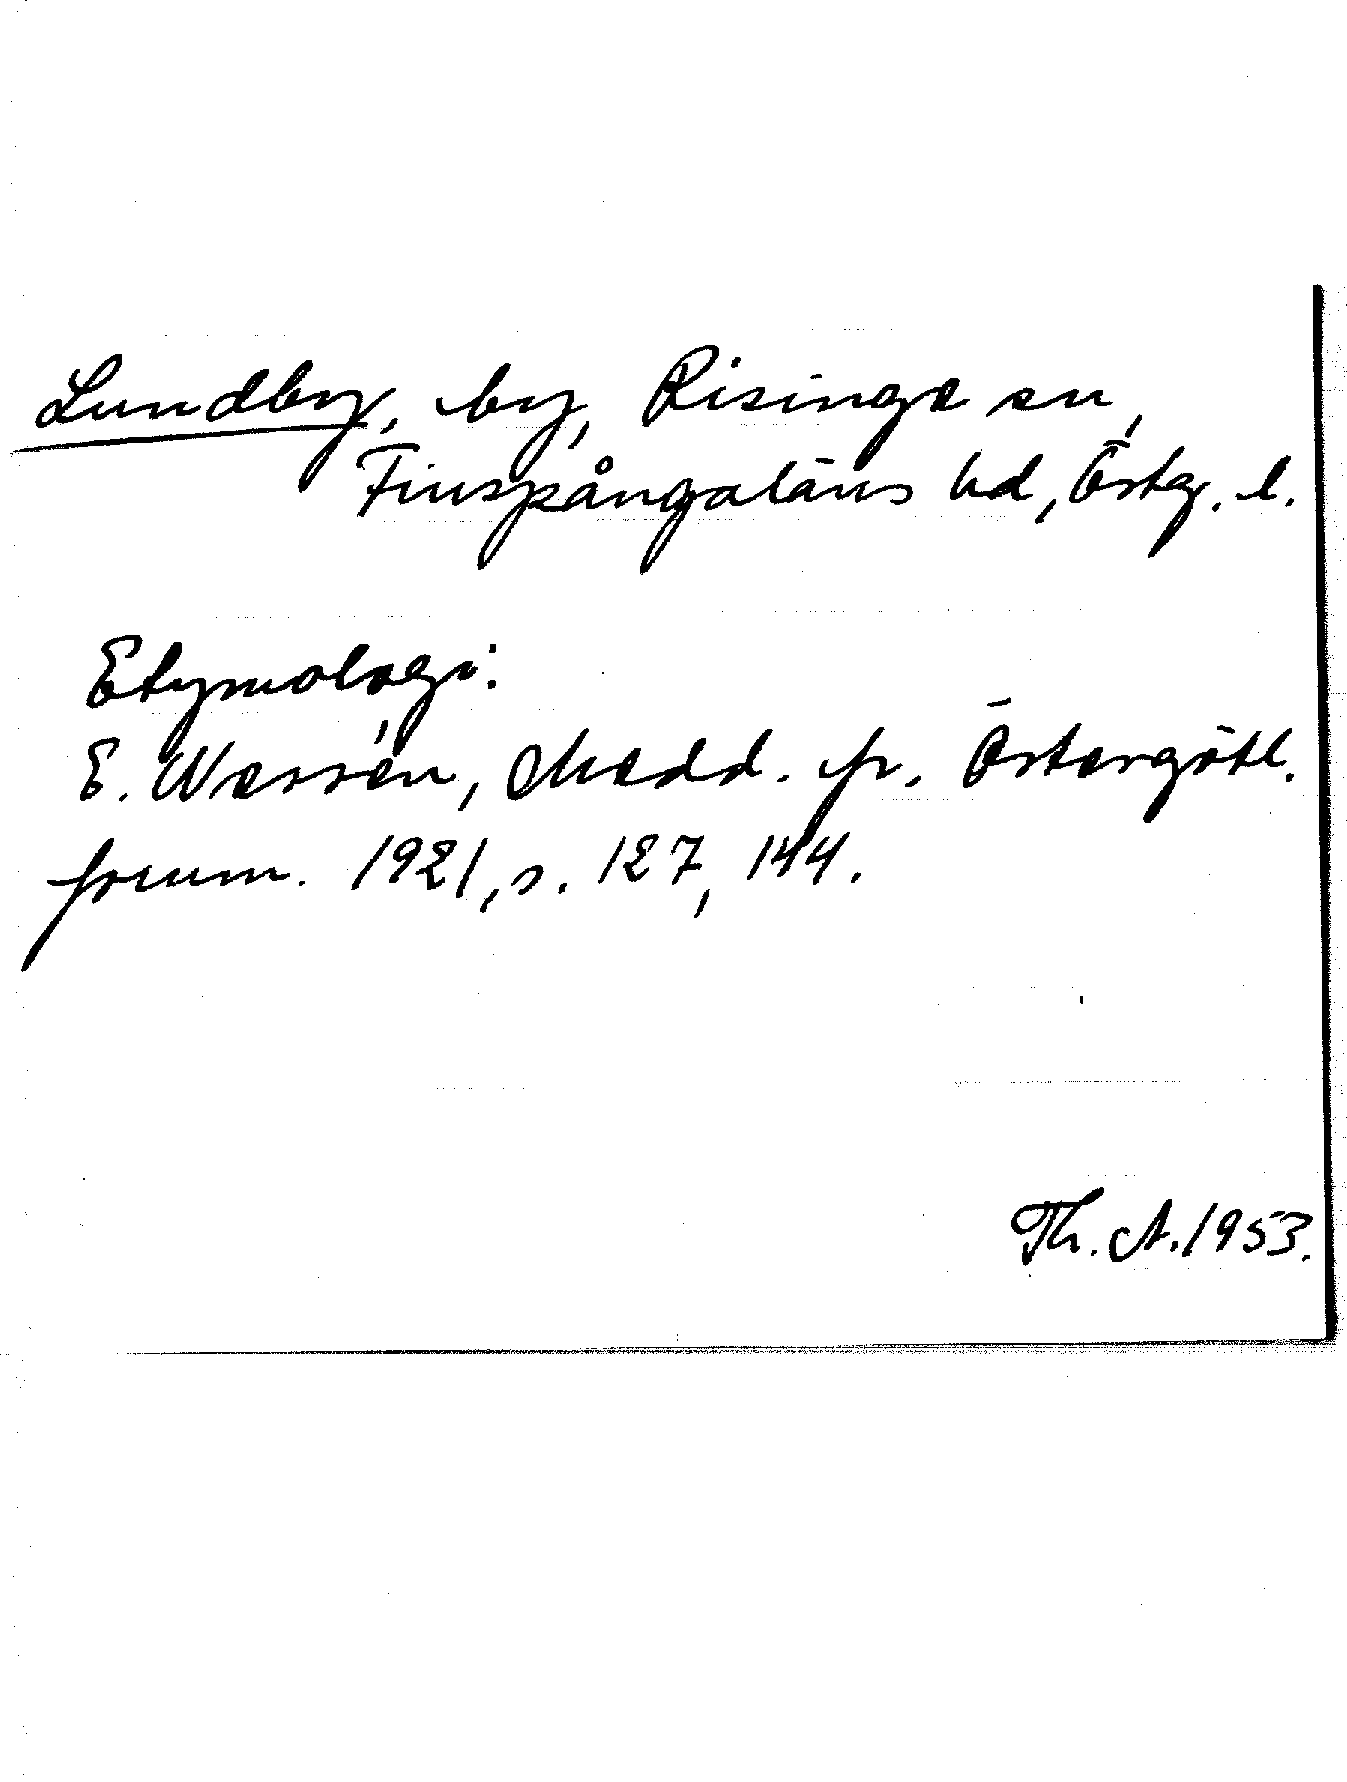 Lundby, by, Risinge sn,
Finspångaläns hd, Östg. l.
Etymologi:
E. Wessén, Medd. fr. Östergötl.
fornm. 1921, s. 127, 144.
Th. A. 1953.